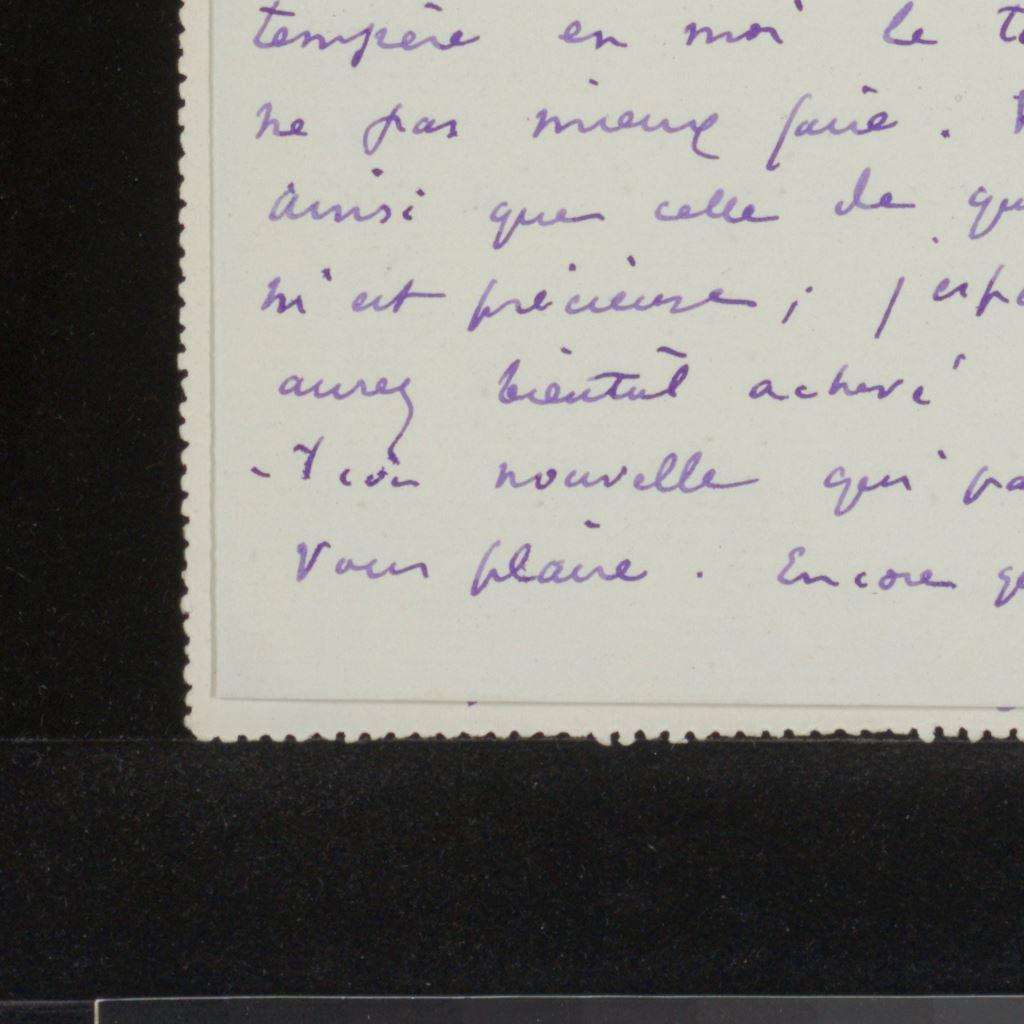 tempère en moi le
ne pas mieux faire.
ainsi que celle de
m'est précieuse ; j'espè
aurez bientôt achevé
-tion nouvelle qui
vous plaire. Encore